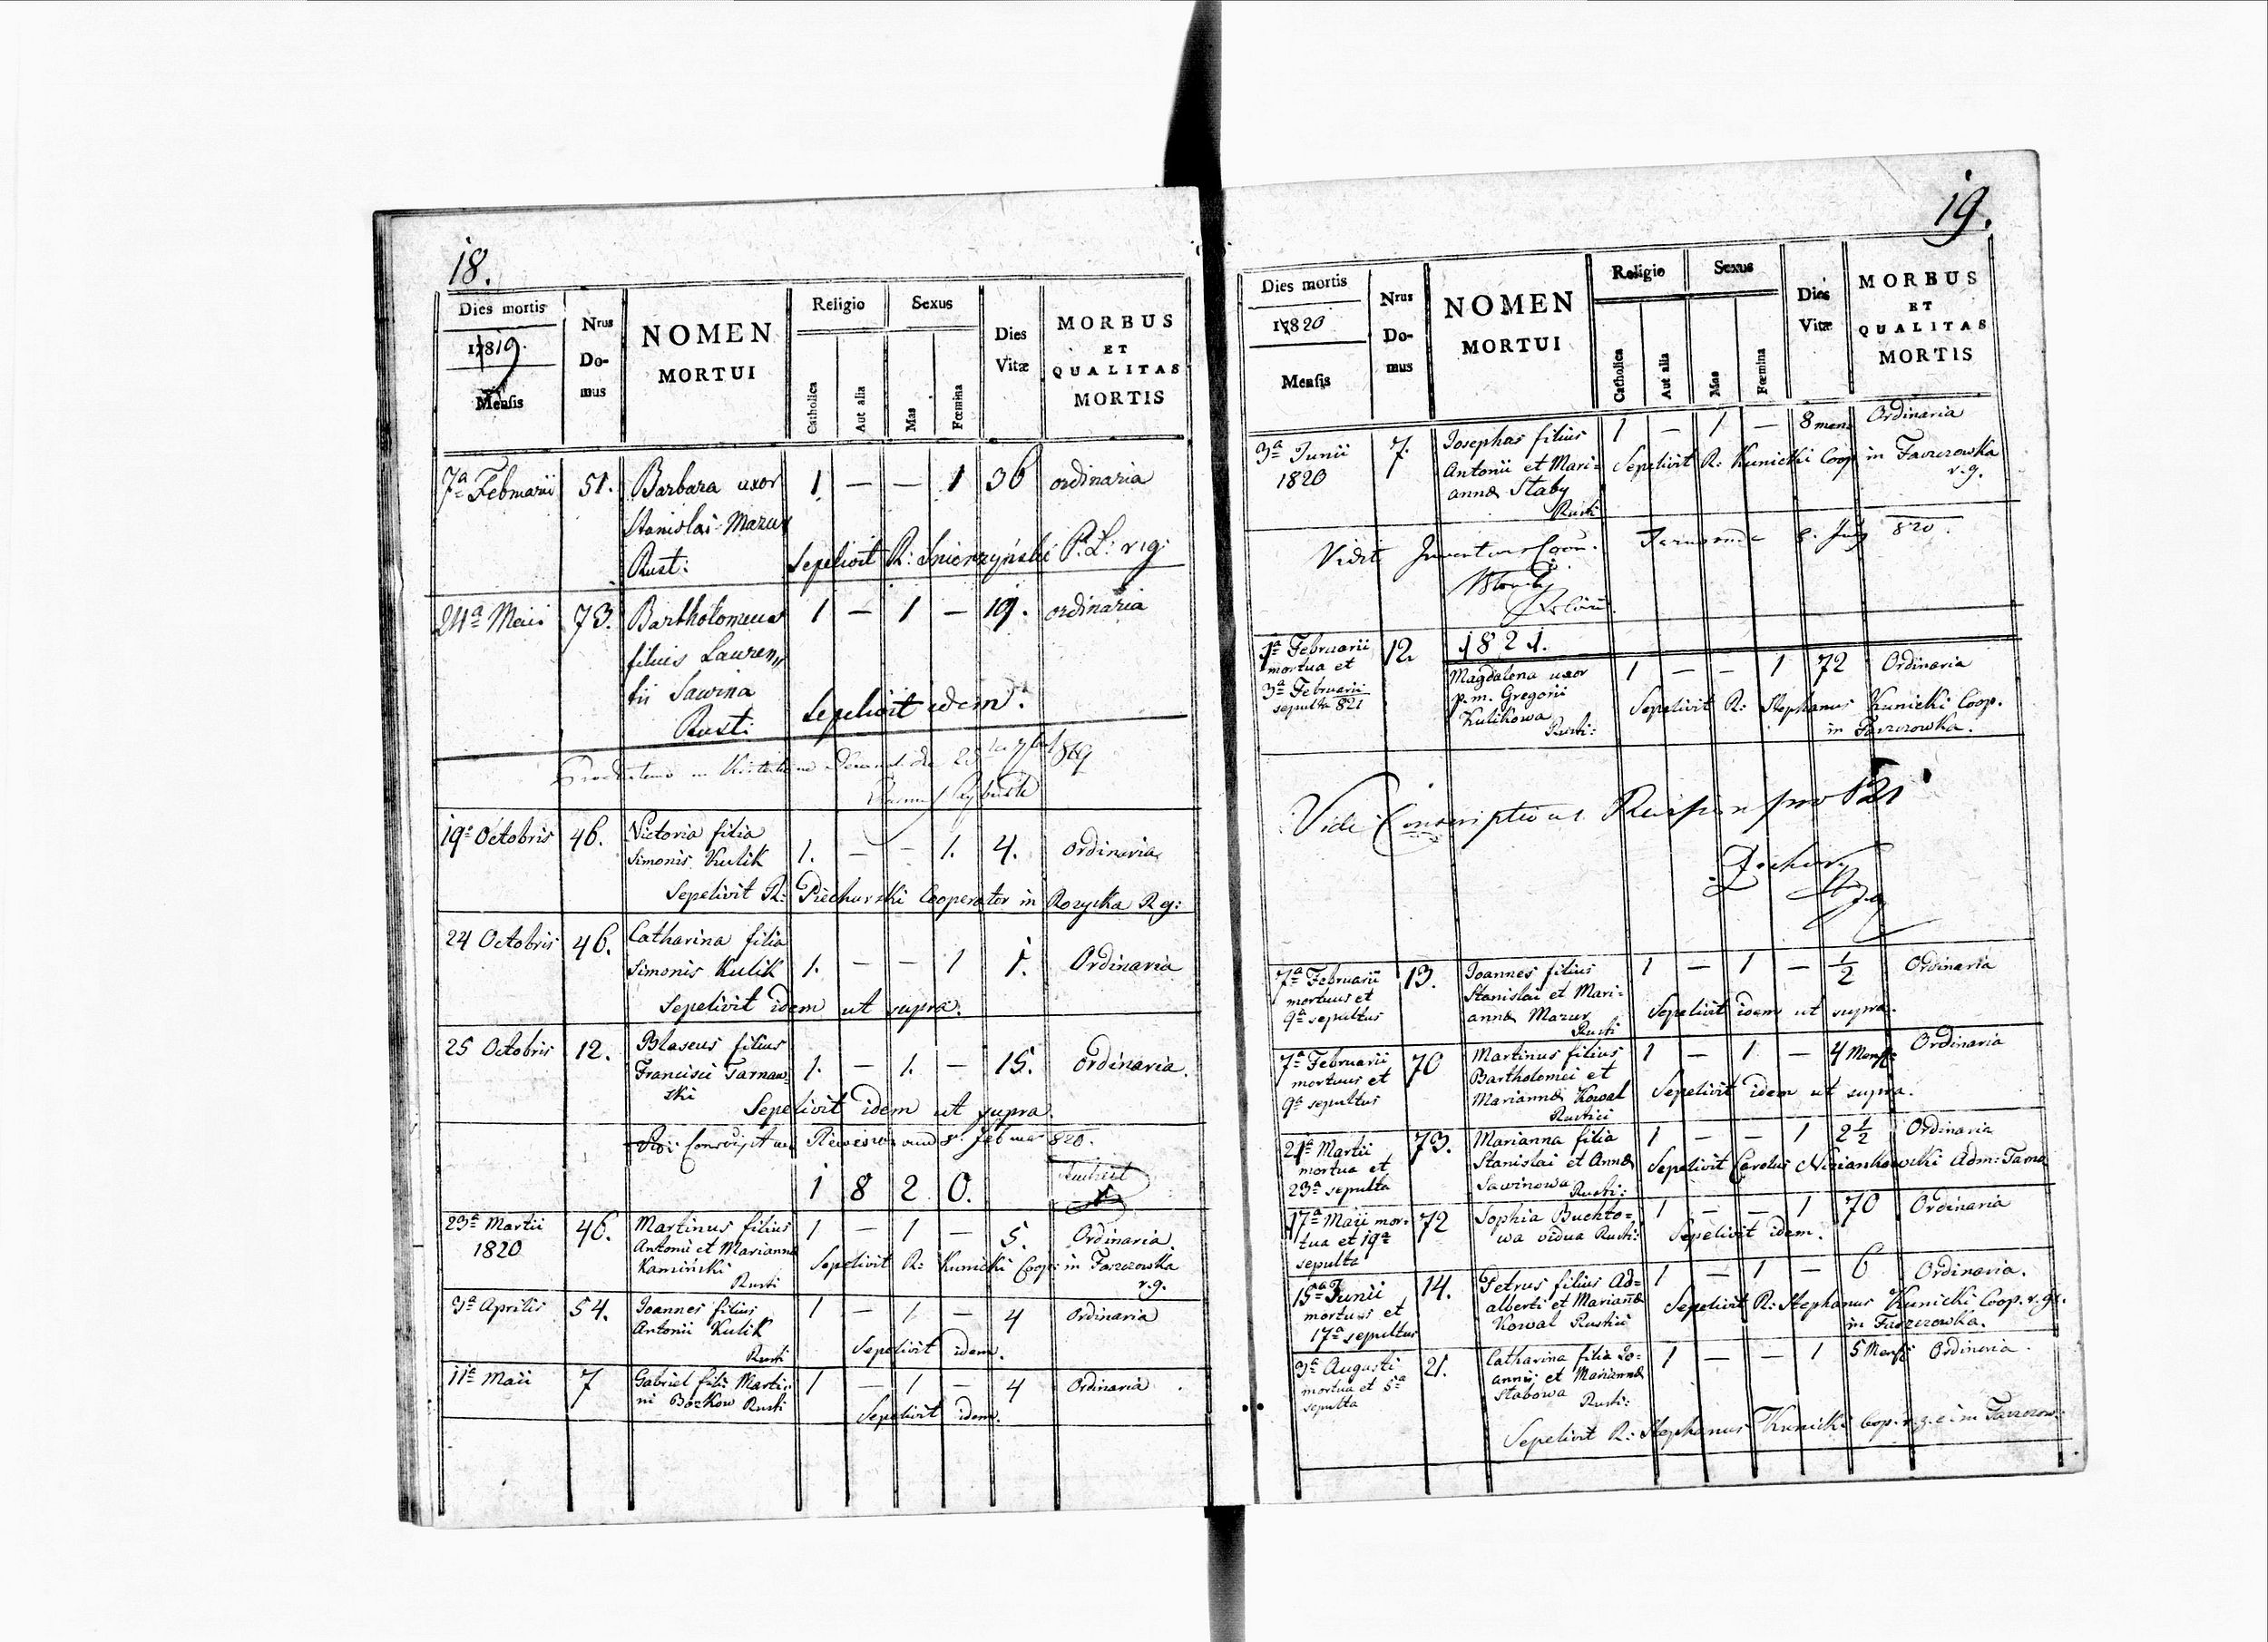 18.
Dies mortis
17819.
Mensis
Nrus Do- mus
NOMEN
MORTUI
Religio
Catholica
Aut alia
Sexus
Mas
Fœmina
Dies
Vitæ
MORBUS
ET
QUALITAS
MORTIS
7ª Februarii 51. Barbara uxor 1 — — 1 36 ordinaria
Stanislai Mazur
Rust: Sepelivit R: Snierzyński P.L: r.g:
24ª Maii 73. Bartholomeus 1 — 1 — 19. ordinaria
filius Lauren„
tii Sawina
Rusti Sepelivit idem.
19ª Octobris 46. Victoria filia
Simonis Kulik 1. — — 1. 4. Ordinaria
Sepelivit R: Piechurski Cooperator in Rozycka Rg:
24 Octobris 46. Catharina filia
Simonis Kulik 1. — — 1 1. Ordinaria
Sepelivit idem ut supra.
25 Octobris 12. Blaseus filius
Francisci Tarnaw= 1. — 1. — 15. Ordinaria.
ski
Sepelivit idem ut supra.
820.
1 8 2 0.
23ª Martii 46. Martinus filius 1 — 1 — 5. Ordinaria
1820 Antonii et Marianna
Kamiński Sepelivit R: Kunicki Coop: in Faszczowka
Rusti r.g.
3ª Aprilis 54. Joannes filius 1 — 1 — 4 Ordinaria
Antonii Kulik
Rusti Sepelivit idem.
11ª Maii 7 Gabriel fili: Marti: 1 — 1 — 4 Ordinaria.
ni Bozkow Rusti Sepelivit idem.
19.
Dies mortis
17820
Mensis
Nrus
Do-
mus
NOMEN
MORTUI
Religio
Catholica
Aut alia
Sexus
Mas
Fœmina
Dies
Vitæ
MORBUS
ET
QUALITAS
MORTIS
3ª Junii 7. Josephus filius 1 — 1 — 8 mens Ordinaria
1820 Antonii et Mari= Sepelivit R: Kunicki Coop in Faszczowka
annæ Staby r.g.
Rusti
Vidit 820.
1ª Februarii 12. 1821.
mortua et Magdalena uxor 1 — — 1 72 Ordinaria
3ª Februarii p.m. Gregorii
sepulta 821 Kulikowa Sepelivit R: Stephanus Kunicki Coop.
Rusti: in Faszczowka.
7ª Februarii 13. Joannes filius 1 — 1 — 1/2 Ordinaria
mortuus et Stanislai et Mari=
9ª sepultus annæ Mazur Sepelivit idem ut supra.
Rusti
7ª Februarii 70 Martinus filius 1 — 1 — 4 Mens: Ordinaria
mortuus et Bartholomei et
9ª sepultus Mariannæ Kowal Sepelivit idem ut supra.
Rustici
21ª Martii 73. Marianna filia 1 — — 1 2 1/2 Ordinaria
mortua et Stanislai et Annæ Sepelivit Carolus Niziankowski Adm: Tarno
23ª sepulta Sawinowa Rusti:
17ª Maii mor= 72 Sophia Buchto= 1 — — 1 70 Ordinaria
tua et 19ª wa vidua Rusti: Sepelivit idem.
sepulta
15ª Junii 14. Petrus filius Ad= 1 — 1 — 6 Ordinaria.
mortuus et alberti et Mariañæ Sepelivit R: Stephanus Kunicki Coop. r. gr.
17ª sepultus Kowal Rustici in Faszczowka.
3ª Augusti 21. Catharina filia Jo= 1 — — 1 5 Mens: Ordinaria.
mortua et 5ª annis et Mariannæ
sepulta Stabowa Rusti:
Sepelivit R: Stephanus Kunicki